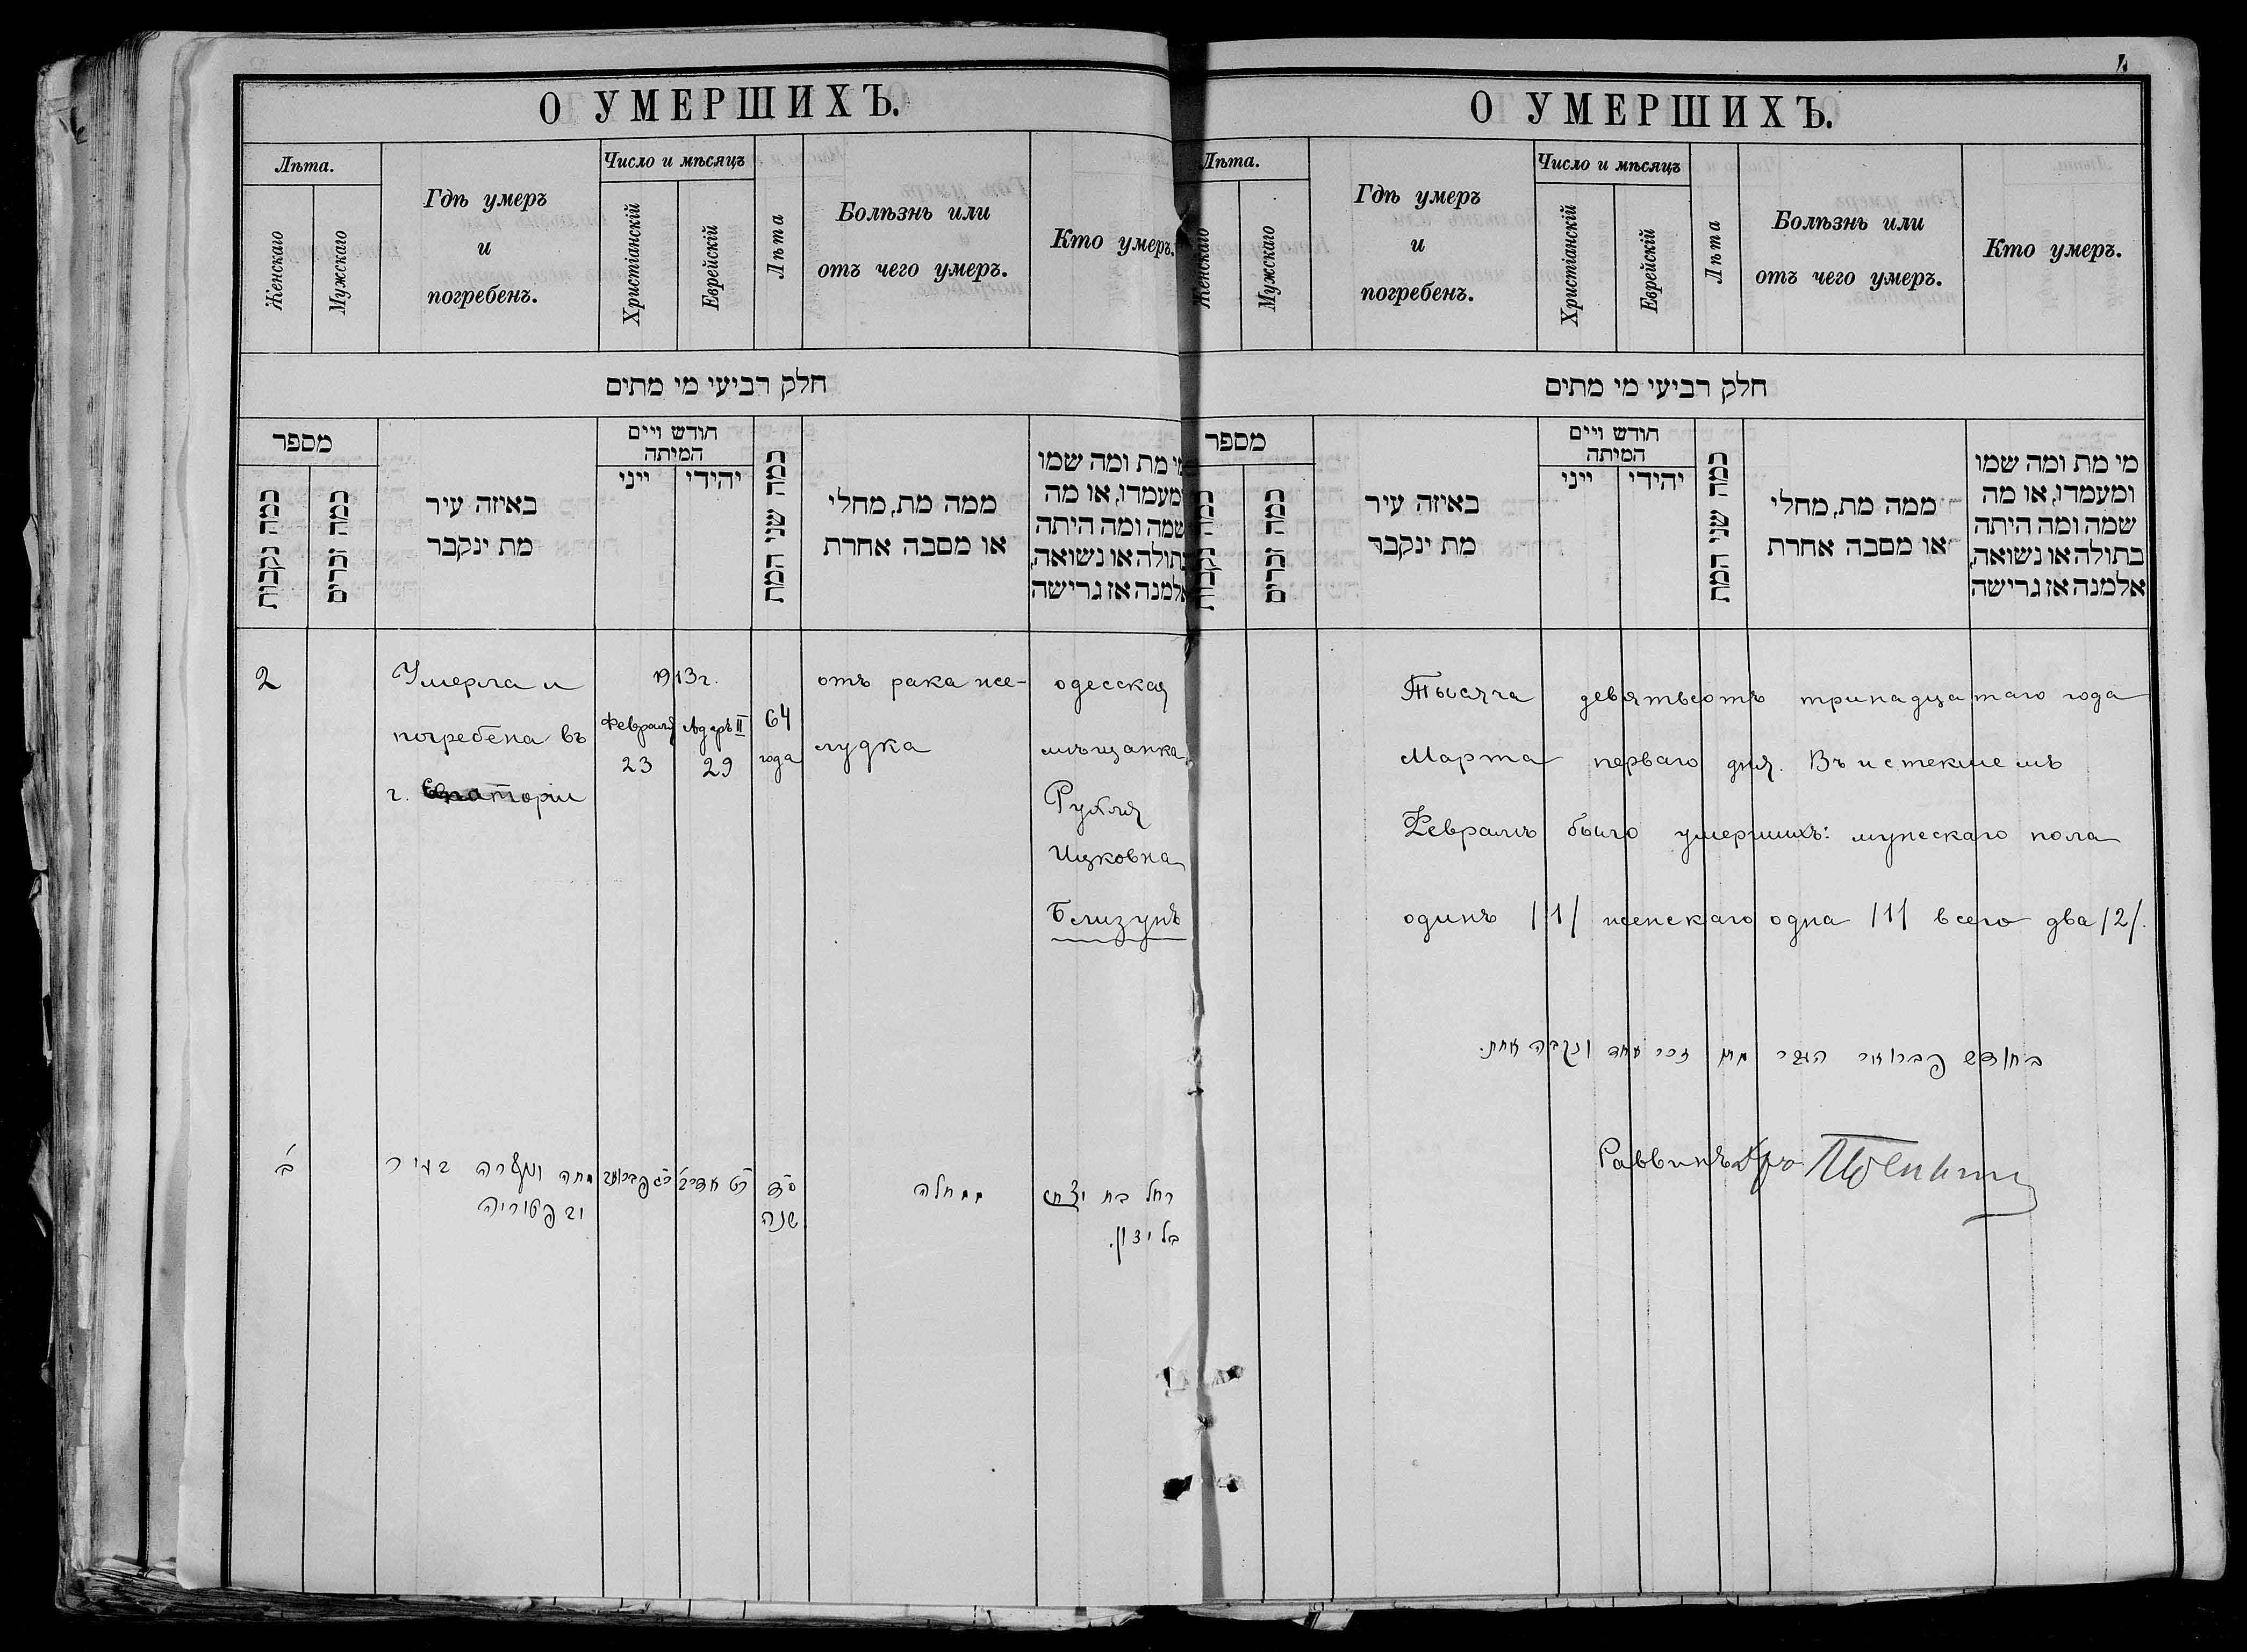 О УМЕРШИХЪ.
Лѣта.
Женскаго
Мужскаго
Гдѣ умеръ
и
погребенъ.
Число и мѣсяцъ
Христіанскій
Еврейскій
Лѣта
Болѣзнь или
отъ чего умеръ.
Кто умеръ.
חלק רביעי מי מתים
מספר
כמה נקבות
כמה זכרים
באיזה עיר
מת ינקבר
חודש ויים
המיתה
ייני
יהידי
כמה שני המת
ממה מת, מחלי
או מסבה אחרת
מי מת ומה שמו
ומעמדו, או מה
שמה ומה היתה
בתולה או נשואה,
אלמנה אז גרישה
2
Умерла и
погребена въ
г. Евпаторіи
1913 г.
Февраля
23
Адаръ II
29
64
года
отъ рака же-
лудка
одесская
мѣщанка
Рухля
Ицковна
Близунъ
ב'
מתה
בעיר
שנה
ממחלה
רחל בת יצחק
בליזון.
О УМЕРШИХЪ.
Лѣта.
Женскаго
Мужскаго
Гдѣ умеръ
и
погребенъ.
Число и мѣсяцъ
Христіанскій
Еврейскій
Лѣта
Болѣзнь или
отъ чего умеръ.
Кто умеръ.
חלק רביעי מי מתים
מספר
כמה נקבות
כמה זכרים
באיזה עיר
מת ינקבר
חודש ויים
המיתה
ייני
יהידי
כמה שני המת
ממה מת, מחלי
או מסבה אחרת
מי מת ומה שמו
ומעמדו, או מה
שמה ומה היתה
בתולה או נשואה,
אלמנה אז גרישה
Тысяча девятьсотъ тринадцатаго года
Марта перваго дня. Въ истекшемъ
Февралѣ было умершихъ: мужескаго пола
одинъ /1/ женскаго одна /1/ всего два /2/.
בחודש פברואר העבר מת זכר אחד ונקבה אחת.
Раввинъ